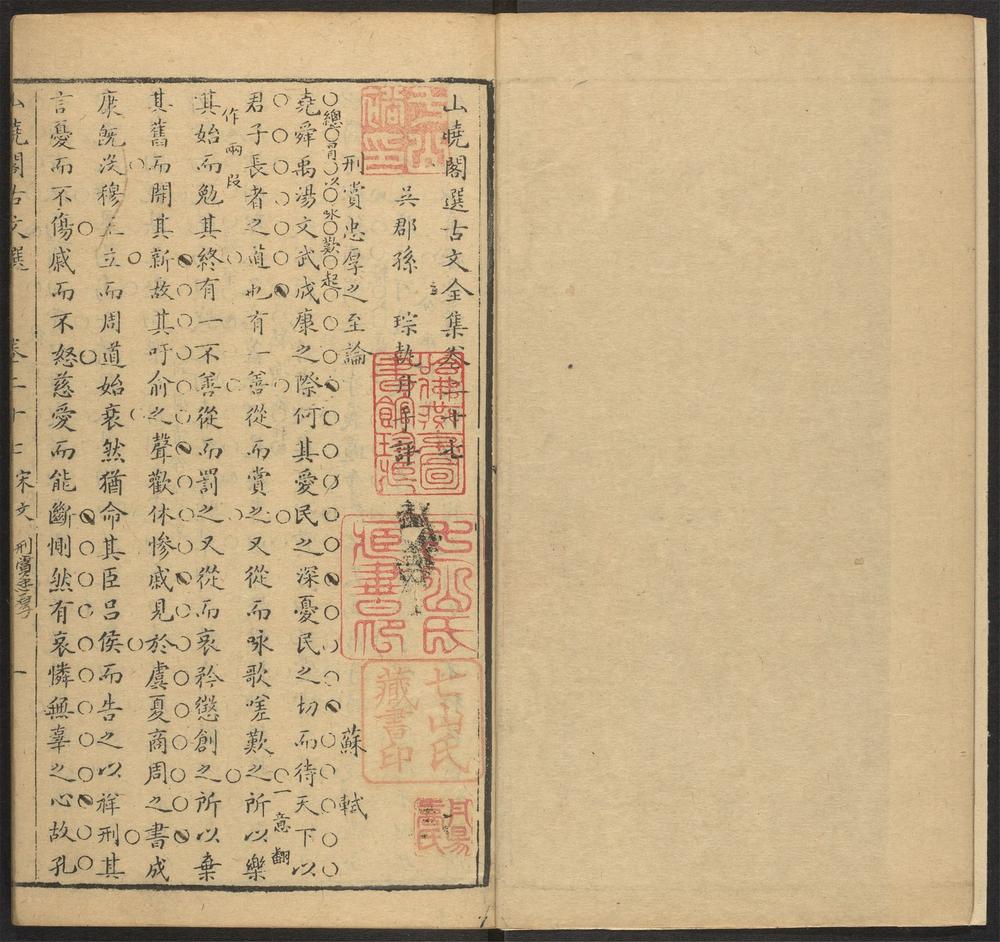 山曉閣選古文全集卷二十七
吳郡孫琮執升手評
刑賞忠厚之至論 蘇軾
總冒以咏歎起
堯舜禹湯文武成康之際何其愛民之深憂民之切而待天下以
一意翻
君子長者之道也有一善從而賞之又從而咏歌嗟歎之所以樂
作兩段
其始而勉其終有一不善從而罰之又從而哀矜懲創之所以棄
其舊而開其新故其吁俞之聲歡休慘戚見於虞夏商周之書成
康旣沒穆王立而周道始衰然猶命其臣呂侯而告之以祥刑其
言憂而不傷戚而不怒慈愛而能斷惻然有哀憐無辜之心故孔
山曉閣古文選 卷二十七 宋文 刑賞忠厚 一
哈佛燕京圖書館珍藏
七山氏藏書印
七山氏藏書印